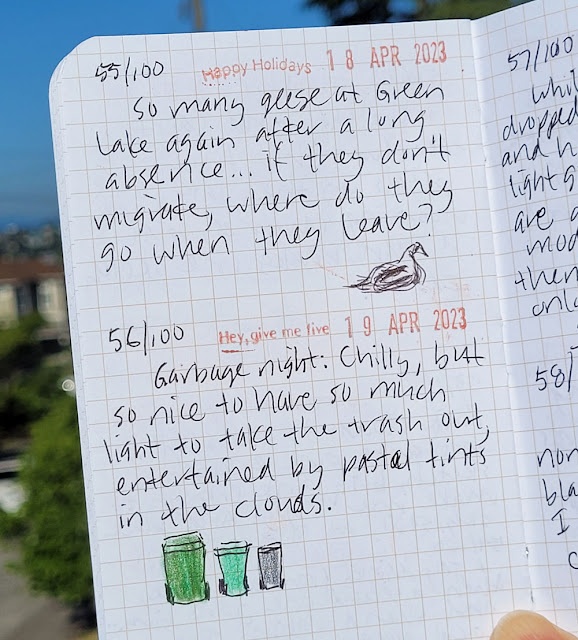 55/100 Happy Holidays 18 APR 2023
So many geese at Green
Lake again after a long
absence... if they don't
migrate, where do they
go when they leave?
56/100 Hey, give me five 19 APR 2023
Garbage night: Chilly, but
so nice to have so much
light to take the trash out,
entertained by pastel tints
in the clouds.
57/100
Whil
dropped
and h
light g
are a
mod
then
onl
58/
non
bla
I